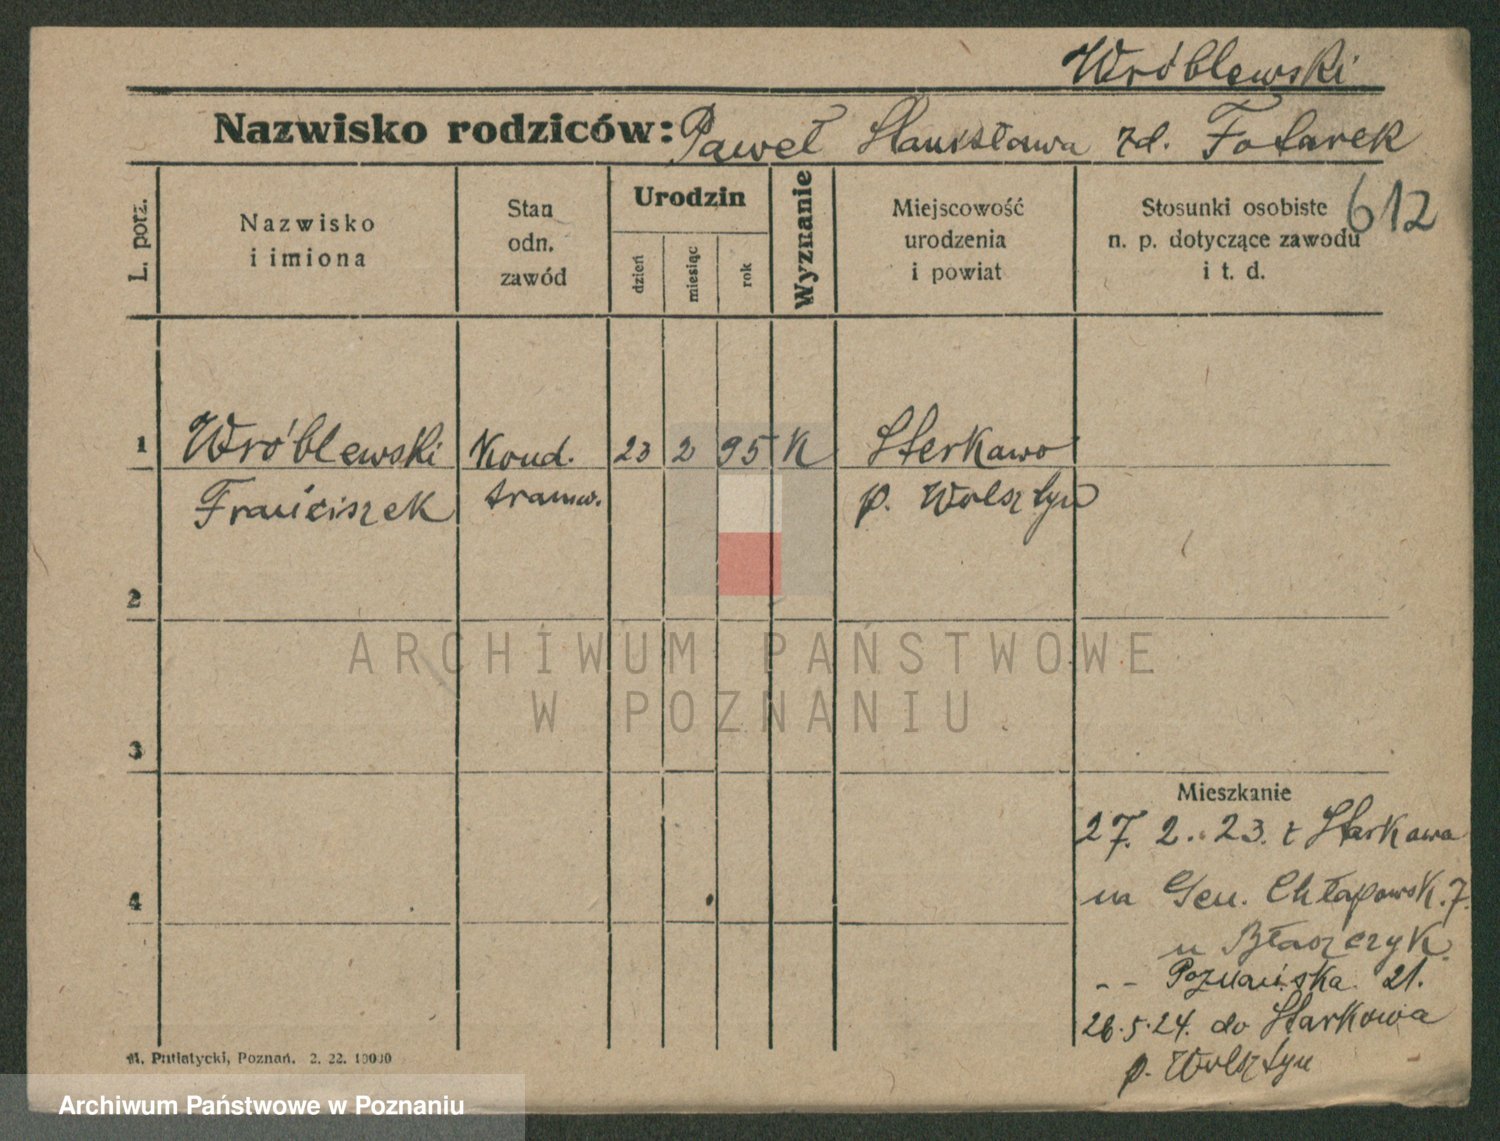 Wróblewski
Nazwisko rodziców: Paweł Stanisława zd. Fotarek
612
L. porz.
Nazwisko
i imiona
Stan
odn.
zawód
Urodzin
dzień
miesiąc
rok
Wyznanie
Miejscowość
urodzenia
i powiat
Stosunki osobiste
n. p. dotyczące zawodu
i t. d.
1 Wróblewski Kond. 23 2 95 K Sterkawo
Franciszek tramw. p. Wolsztyn
2
ARCHIWUM PAŃSTWOWE
W POZNANIU
3
Mieszkanie
27. 2. 23. z Starkowa
4
na Gen. Chłapowsk. 7.
u Błaszczyk.
-- Poznańska 21.
26.5.24. do Starkowa
p. Wolsztyn
M. Putiatycki, Poznań. 2. 22. 10000
Archiwum Państwowe w Poznaniu